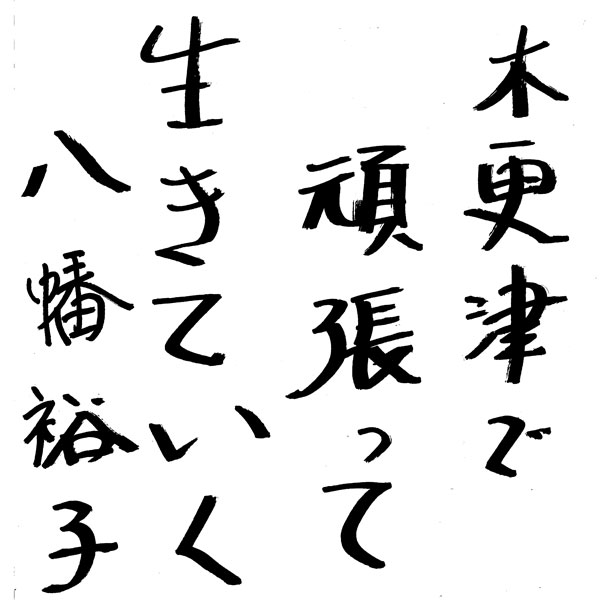 木更津で
頑張って
生きていく
八幡裕子